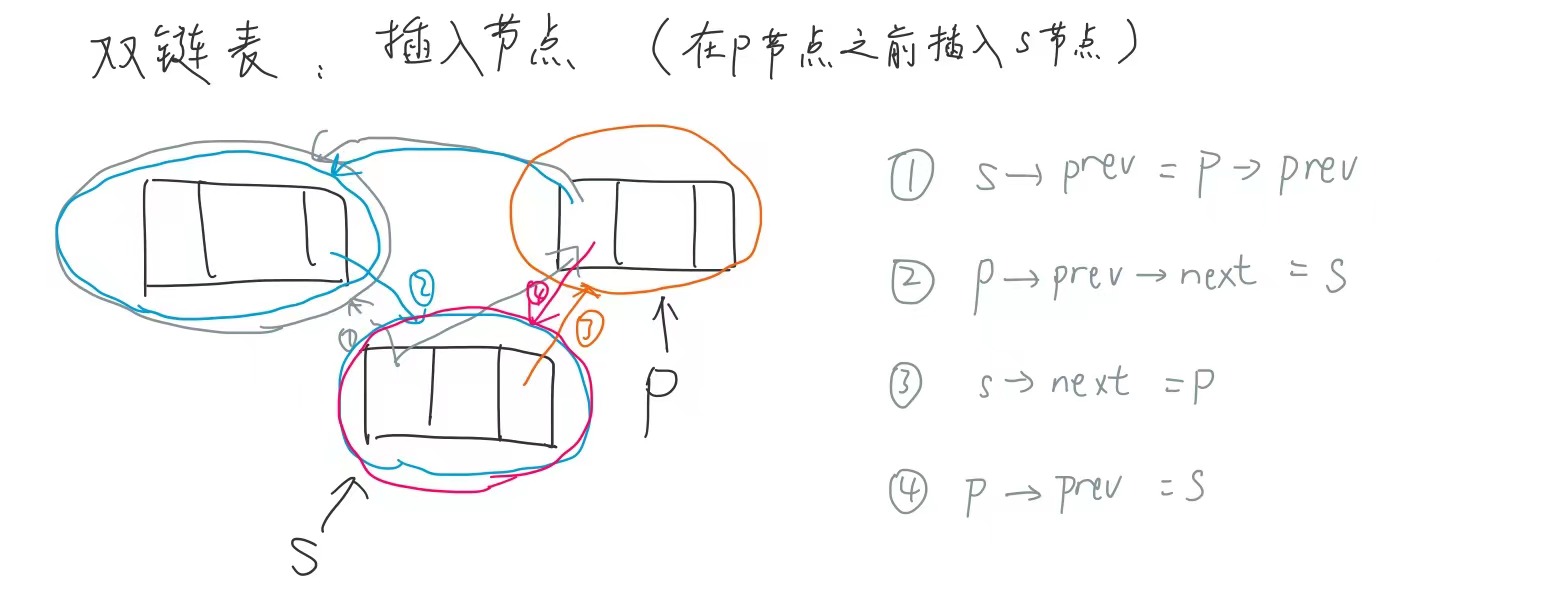 双链表: 插入节点 (在p节点之前插入s节点)
① s→prev = P→prev
② p→prev→next = S
③ s→next =P
④ p→prev =S
②
④
③
①
P
S